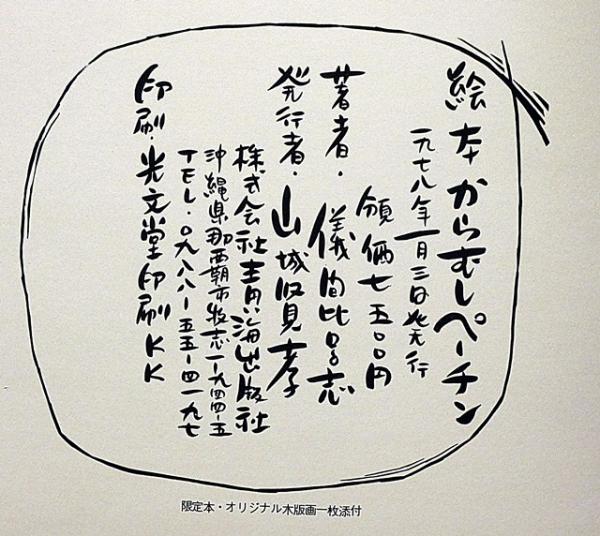 絵本からむしペーチン
一九七八年一月三日発行
領価七五〇〇円
著者・儀間比呂志
発行者・山城賢孝
株式会社青い海出版社
沖縄県那覇市牧志一ー九四四ー五
TEL・〇九八八ー五五ー四一九七
印刷・光文堂印刷KK
限定本・オリジナル木版画一枚添付